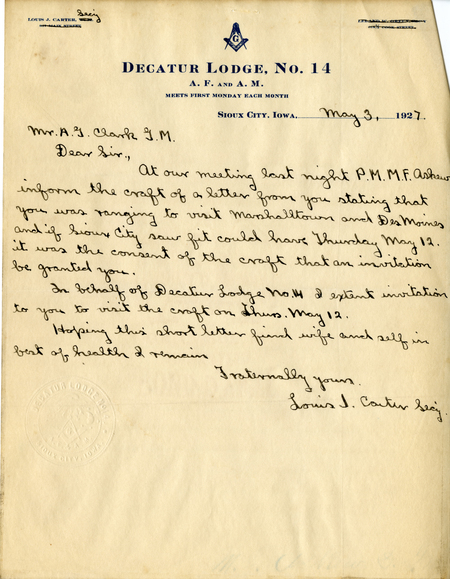 LOUIS J. CARTER, Secy
DECATUR LODGE, NO. 14
A. F. AND A. M.
MEETS FIRST MONDAY EACH MONTH
SIOUX CITY, IOWA, May 3, 1927.
Mr. A. G. Clark G. M.
Dear Sir.,
At our meeting last night P. M. M. F. Askew
inform the craft of a letter from you stating that
you was ranging to visit Marshalltown and Des Moines
and if Sioux City saw fit could have Thursday May 12.
it was the consent of the craft that an invitation
be granted you.
In behalf of Decatur Lodge No. 14 I extent invitation
to you to visit the craft on Thurs. May 12.
Hoping this short letter find wife and self in
best of health I remain
Fraternally yours.
Louis J. Carter Secy.